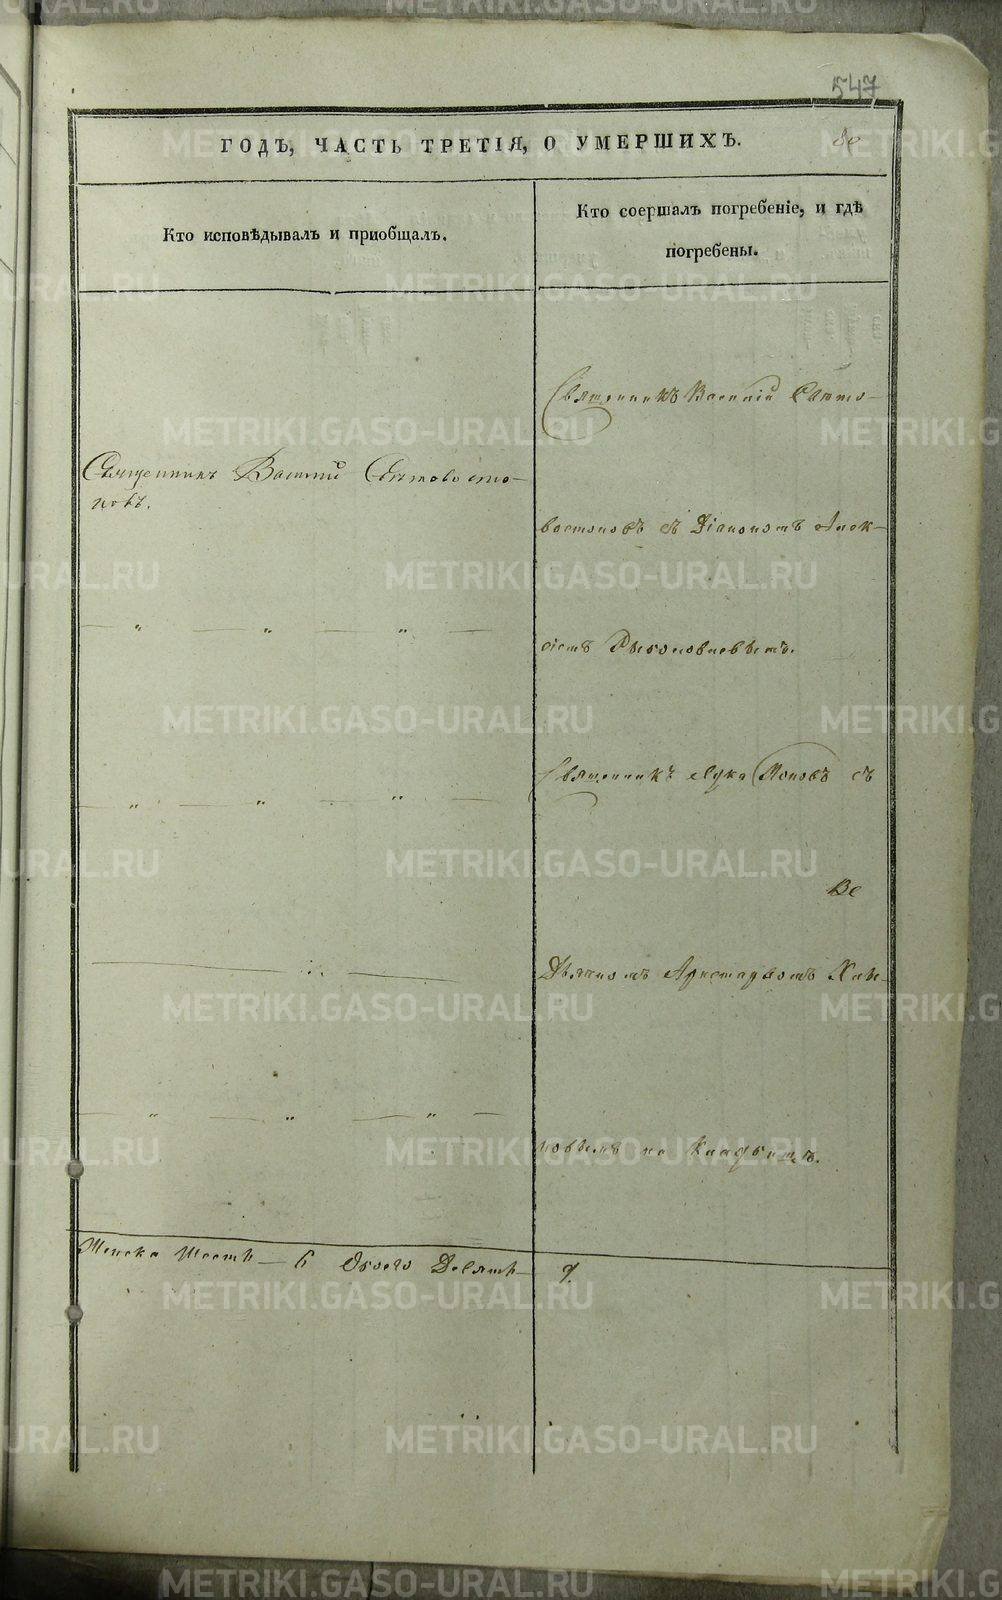 547
ГОДЪ, ЧАСТЬ ТРЕТІЯ, О УМЕРШИХЪ.
80
Кто исповѣдывалъ и приобщалъ.
Кто соершалъ погребеніе, и гдѣ
погребены.
Священникъ Василій Свѣтовосто-
ковъ.
Священникъ Василій Свѣто-
востоковъ съ Діакономъ Алек-
сіемъ
Священникъ Лука Поповъ съ
Ве
Дьячкомъ Аристархомъ Хлы-
новымъ на кладбищѣ.
Женска Шесть — 6 Обоего Девять — 9.
METRIKI.GASO-URAL.RU